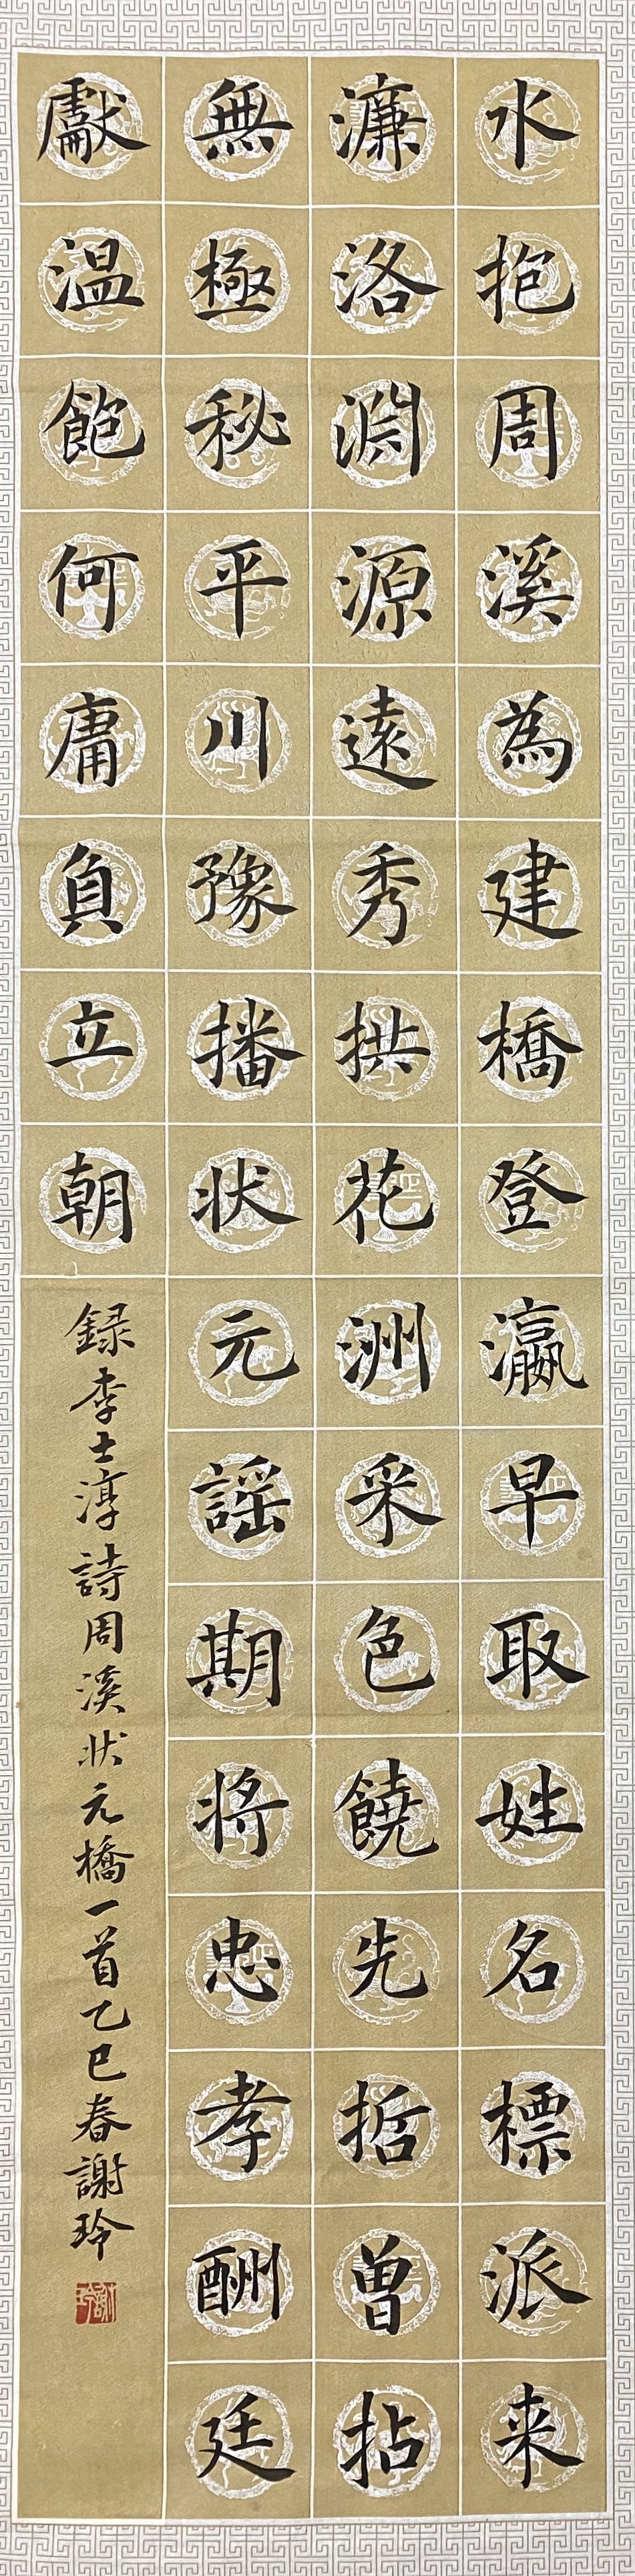 水抱周溪為建橋登瀛早取姓名標派来
濂洛淵源遠秀拱花洲采色饒先哲曾拈
無極秘平川豫播狀元謡期將忠孝酬廷
獻温飽何庸負立朝
録李士淳詩周溪狀元橋一首乙巳春謝玲